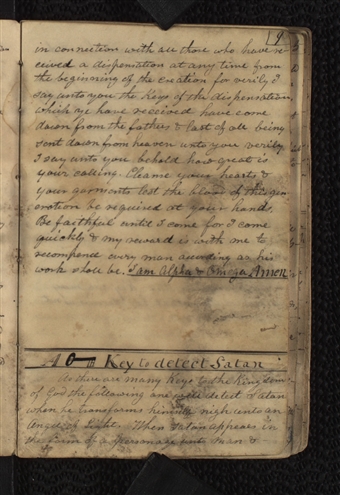 9
in connection with all those who have re-
ceived a dispensation at any time from
the beginning of the creation for verily I
say unto you the Keys of the dispensation
which ye have received have come
down from the fathers & last of all being
sent down from heaven unto you verily
I say unto you behold how great is
your calling. Cleanse your hearts &
your garments lest the blood of this gen-
eration be required at your hands.
Be faithful until I come for I come
quickly & my reward is with me to
recompence every man according as his
work shall be. I am Alpha & Omega, Amen
A Key to detect Satan
As there are many Keys to the Kingdom
of God the following one will detect Satan
when he transforms himself nigh unto an
Angel of light. When Satan appears in
the form of a personage unto man &